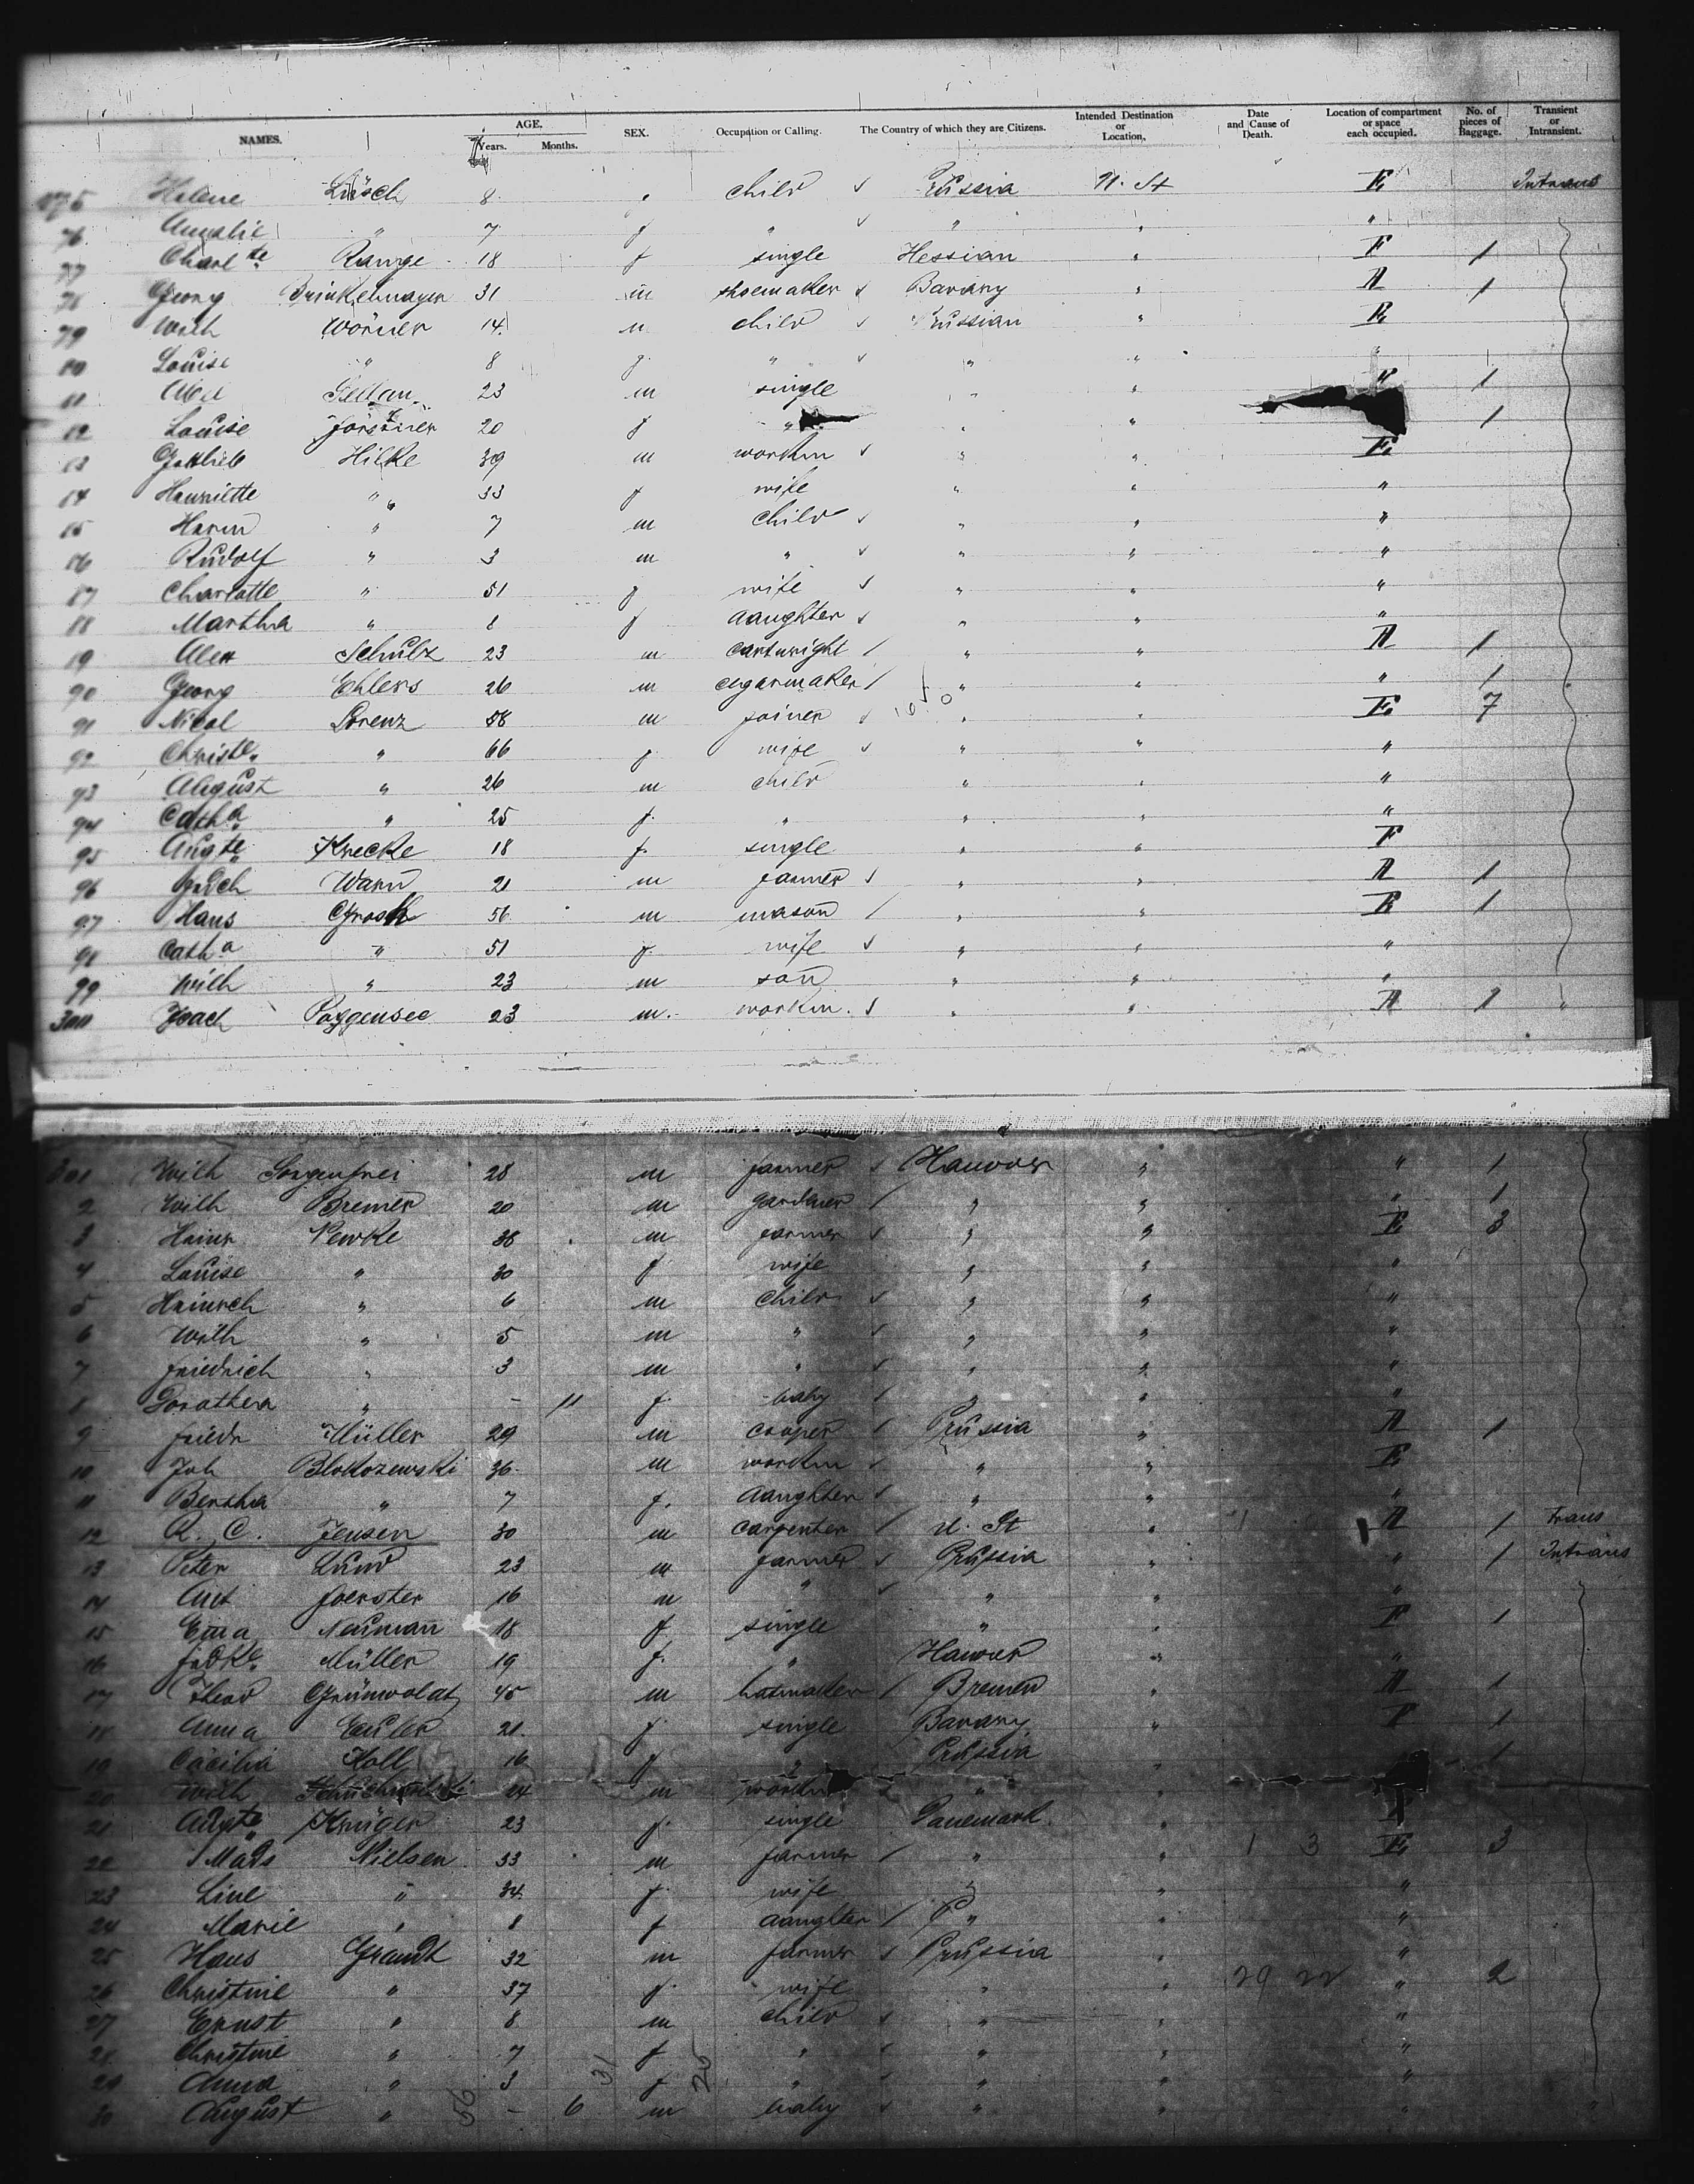 NAMES. AGE. Years. Months. SEX. Occupation or Calling. The Country of which they are Citizens. Intended Destination or Location. Date and Cause of Death. Location of compartment or space each occupied. No. of pieces of Baggage. Transient or Intransient.
275 Helene Lüsch 8 " child Prussia U. St E Intrans
76 Amalie " 7 f " " " "
77 Charl.te Range 18 f single Hessian " F 1
78 Georg Brinkelmayer 31 m shoemaker Bavary " A 1
79 Wilh Wörner 14 m child Prussian " E
80 Louise " 8 f " " " "
81 23 m single " " " 1
82 Louise 20 f " " " 1
83 Gottlieb Hilke 39 m workm " " E
84 Henriette " 33 f wife " " "
85 Herm " 7 m child " " "
86 Rudolf " 3 m " " " "
87 Charlotte " 51 f wife " " "
88 Martha " 8 f daughter " " "
89 Alex Schulz 23 m cartwright " " A 1
90 Georg Ehlers 26 m cigarmaker " " " 1
91 Nicol Lorenz 58 m joiner " " E 7
92 Christe. " 66 f wife " " "
93 August " 26 m child " " "
94 Catha " 25 f " " " "
95 Augte Knecke 18 f single " " F
96 Frdch Warn 21 m farmer " " A 1
97 Hans Groth 56 m mason " " E 1
98 Catha " 51 f wife " " "
99 Wilh " 23 m son " " "
300 Joach Poggensee 23 m. workm. " " A 1 "
301 Wilh Sorgenfrei 28 m farmer Hanover " " 1
2 Wilh Bremer 20 m gardner " " " 1
3 Heinr Newke 38 m farmer " " E 3
4 Louise " 30 f wife " " "
5 Heinrch " 6 m child " " "
6 Wilh " 5 m " " " "
7 Friedrich " 3 m " " " "
8 Dorothea " - 11 f. baby " " "
9 Friedr Müller 29 m cooper Prussia " A 1
10 Joh Blokozewski 36 m workm " " E
11 Bertha " 7 f. daughter " " "
12 R. C. Jensen 30 m carpenter U. St " A 1 Trans
13 Peter Lund 23 m farmer Prussia " " 1 Intrans
14 Ant Foerster 16 m " " " "
15 Ema Neumañ 18 f single " " F 1
16 Fr̄dke. Müller 19 f. " Hanover " "
17 Theod Grünwoldt 45 m hatmaker Bremen " A 1
18 Anna Euler 21 f single Bavary " F 1
19 Cäcilia Koll 16 f " Prussia " 1
20 Wilh 24 m workm " "
21 Augte Krüger 23 f. single Danemark "
22 Mads Nielsen 33 m farmer " " 1 3 E 3
23 Line " 34 f. wife " " "
24 Marie " 8 f daughter " " "
25 Hans Grandt 32 m farmer Prussia " "
26 Christine " 37 f. wife " " 29 22 " 2
27 Ernst " 8 m child " " "
28 Christine " 7 f " " " "
29 Anna " 3 f " " " "
30 August " - 6 m baby " " " "
56 31 25